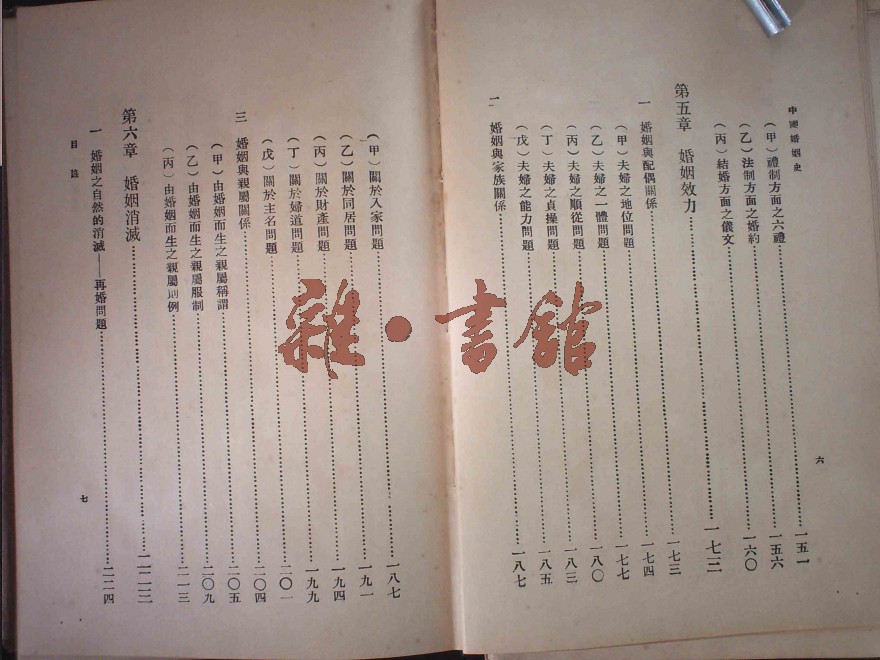 中國婚姻史
(甲)禮制方面之六禮……一五一
(乙)法制方面之婚約……一五六
(丙)結婚方面之儀文……一六〇
第五章 婚姻效力……一七二
一 婚姻與配偶關係……一七三
(甲)夫婦之地位問題……一七四
(乙)夫婦之一體問題……一七七
(丙)夫婦之順從問題……一八〇
(丁)夫婦之貞操問題……一八三
(戊)夫婦之能力問題……一八五
二 婚姻與家族關係……一八七
六
(甲)關於入家問題……一八七
(乙)關於同居問題……一九一
(丙)關於財產問題……一九四
(丁)關於婦道問題……一九九
(戊)關於主名問題……二〇一
三 婚姻與親屬關係……二〇四
(甲)由婚姻而生之親屬稱謂……二〇五
(乙)由婚姻而生之親屬服制……二〇九
(丙)由婚姻而生之親屬則例……二一三
第六章 婚姻消滅……二二三
一 婚姻之自然的消滅——再婚問題……二二四
目錄
七
雜·書館